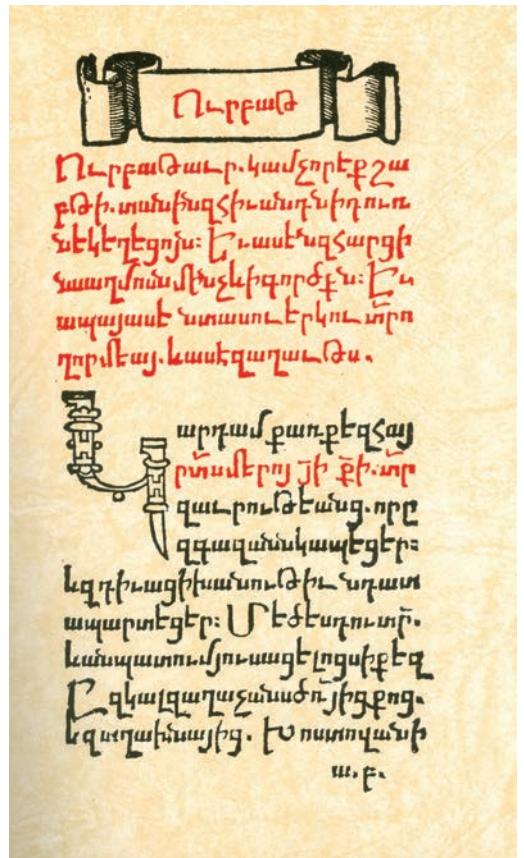 Ուրբաթ
Ուրբաթաւր. կամ չորեքշա
բթի. տանին զհիւանդն ի դուռ
ն եկեղեցոյն: Եւ ասեն զհարցի
ն սաղմոսն մինչև ի գործքն: Եւ
ապա յասէ նստասու երկու տ̃ր ո
ղորմեայ. և ասէ զաղաւթս.
Կարդամք առ քեզ հայ
ր տ̃ն մերոյ յ̃ի ք̃ի. տ̃ր
զաւրութեանց. որը
զգազանն կապեցեր:
և զդիւաց իխանութիւնդատ
ապարտեցեր: Մեծ ես դու տ̃ր.
և անպատում յուսացելոցս ի քեզ
Ընկալ զաղաչանս ծռ̃յից քոց.
և զաղխնայից. Խոստովանի
ա. բ.